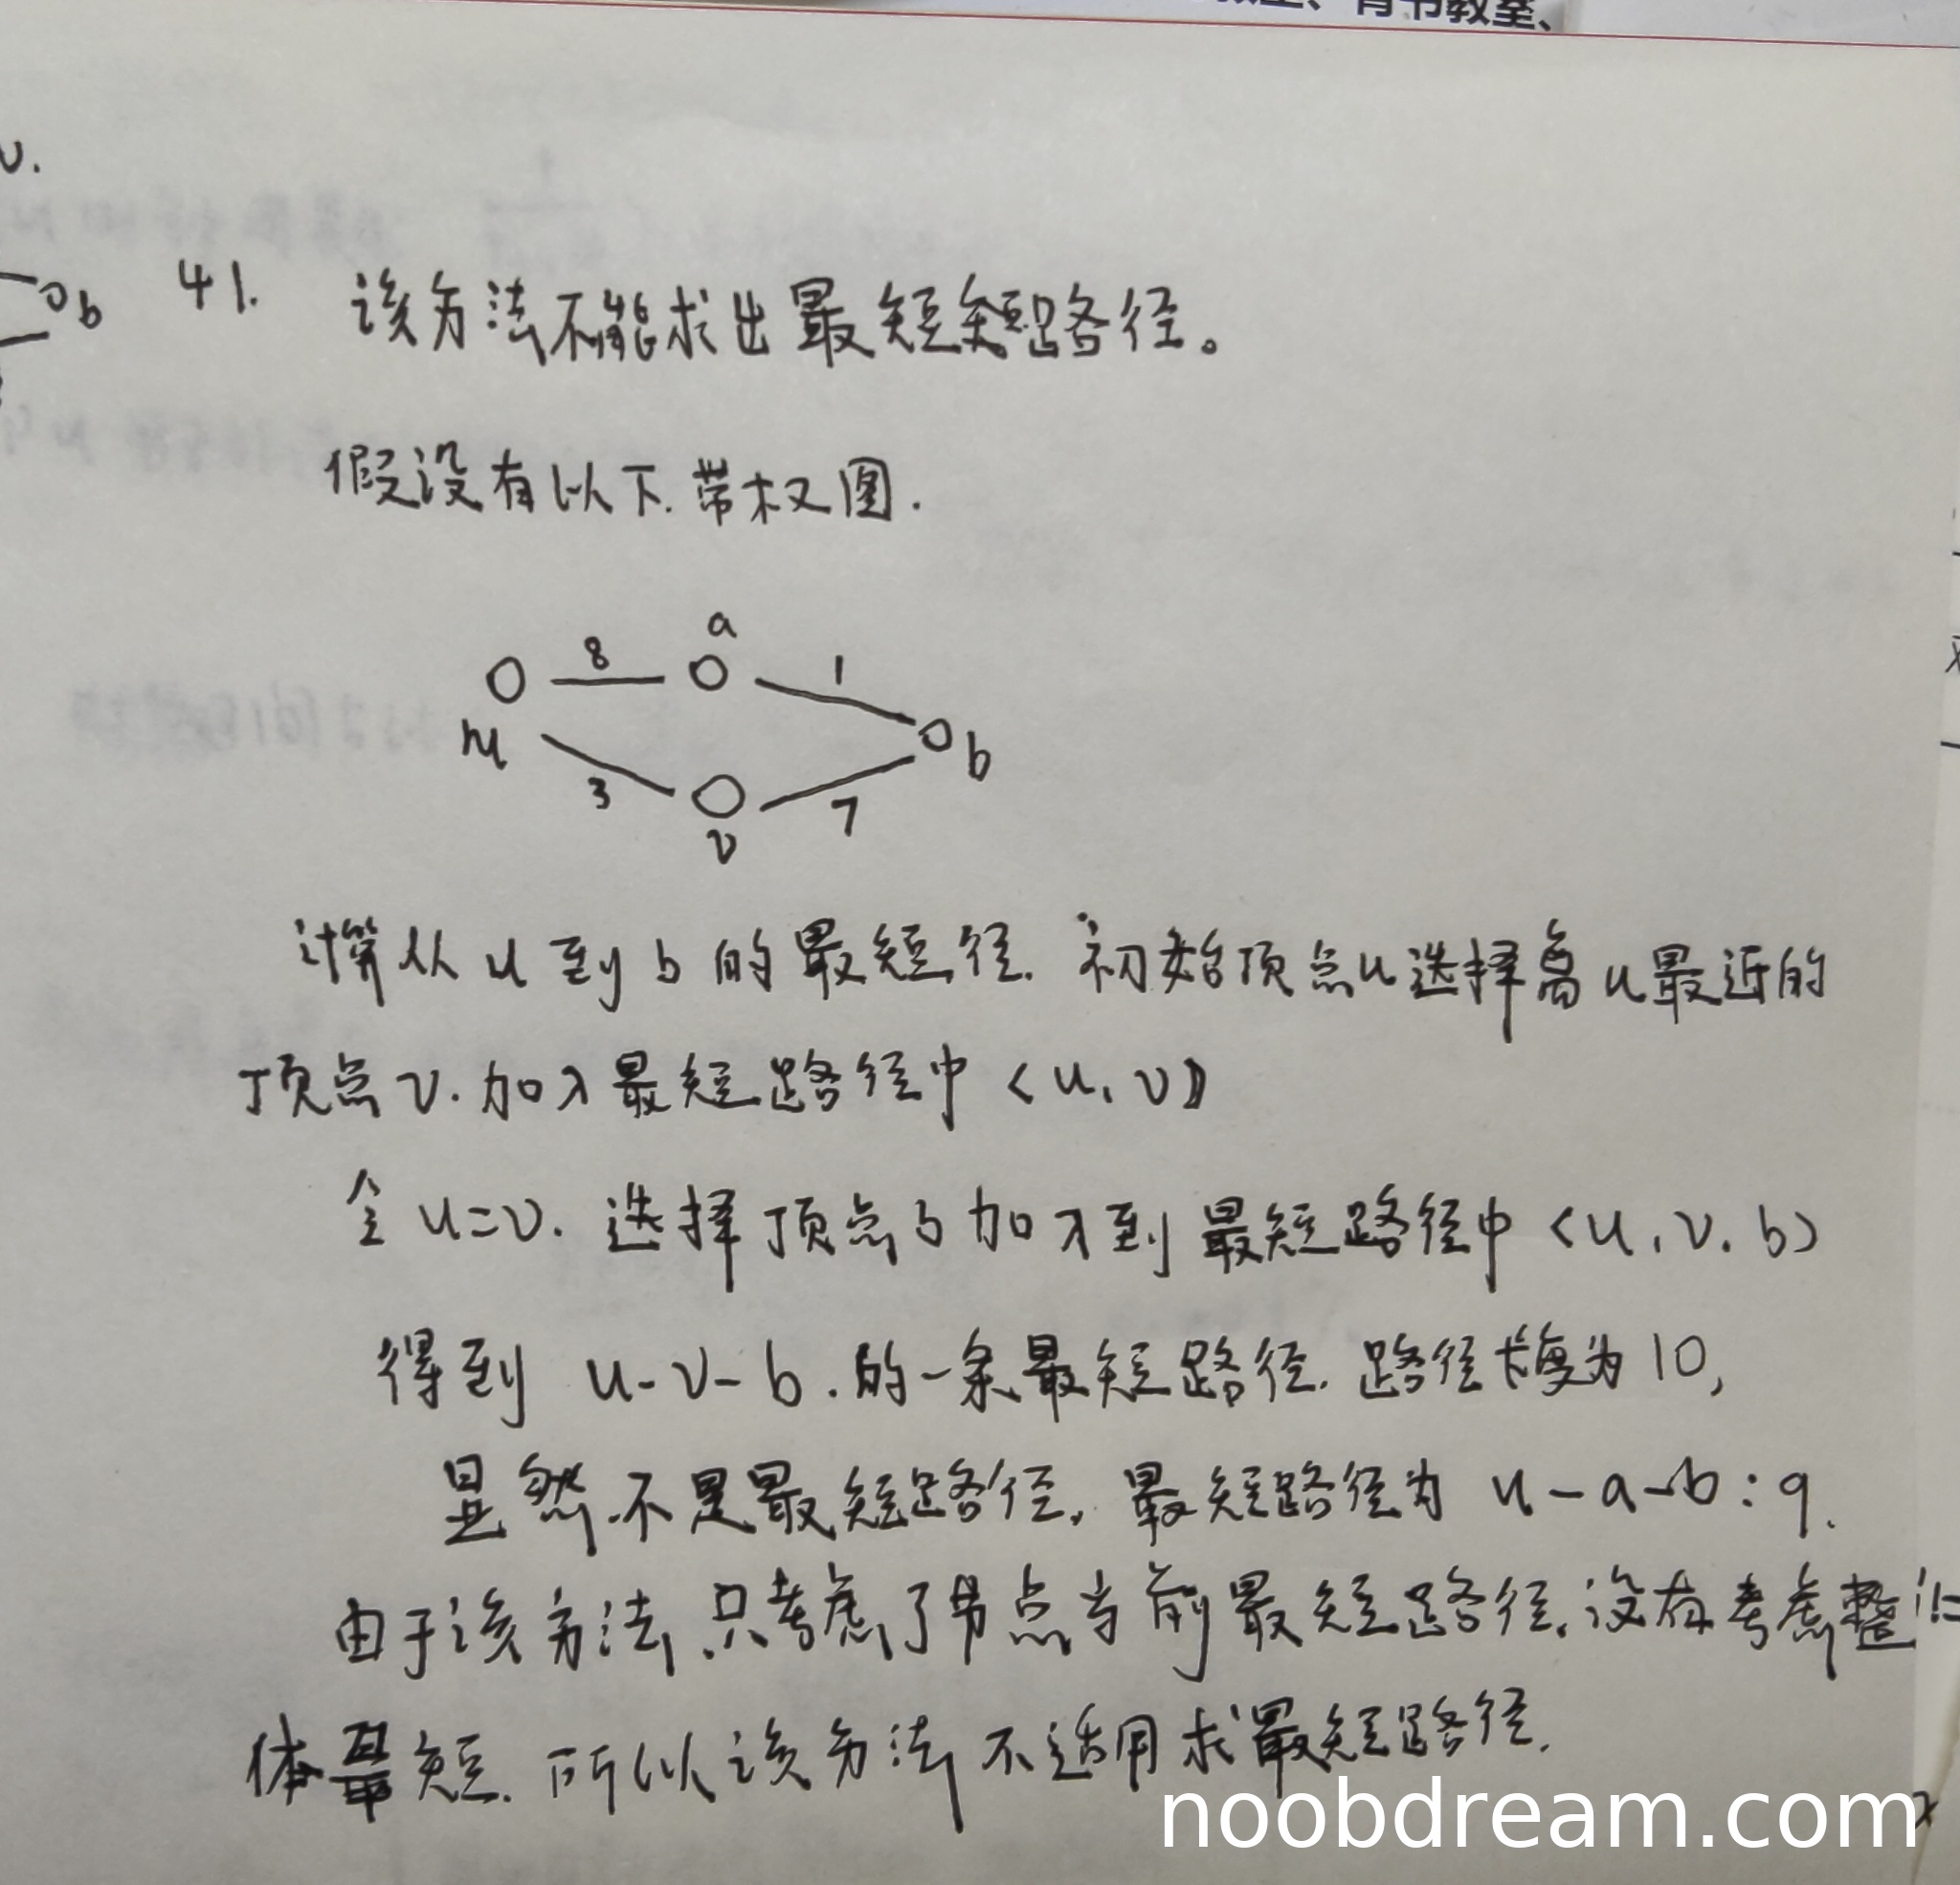 青书教室、
v.
b
41. 该方法不能求出最短路径。
假设有以下带权图.
a
8
1
u
b
3
7
v
计算从u到b的最短径. 初始顶点u选择离u最近的
顶点v.加入最短路径中<u,v>
令u=v. 选择顶点b加入到最短路径中<u,v,b>
得到 u-v-b.的一条最短路径.路径长度为10,
显然不是最短路径, 最短路径为 u-a-b:9.
由于该方法只考虑了节点当前最短路径,没有考虑整
体最短.所以该方法不适用求最短路径.
noobdream.com